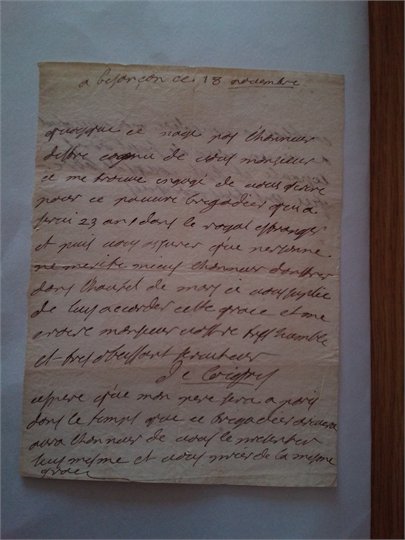 a besançon ce 18 novembre
quoyque ie naye pas lhonneur
destre connu de vous monsieur
ie me trouve engagé de vous escrire
pour ce pauvre brigadier qui a
servi 23 ans dans le royal estranger
et puis vous assurer que personne
ne merite mieux lhonneur dentrer
dans lhautel de mars ie vous suplie
de luy accorder cette grace et me
croire monsieur vostre tres humble
et tres obeissant serviteur
espere que mon pere sera a paris
dans le temps que ce brigadier arrivera
aura lhonneur de vous le presenter
luy mesme et vous prier de la mesme
grace